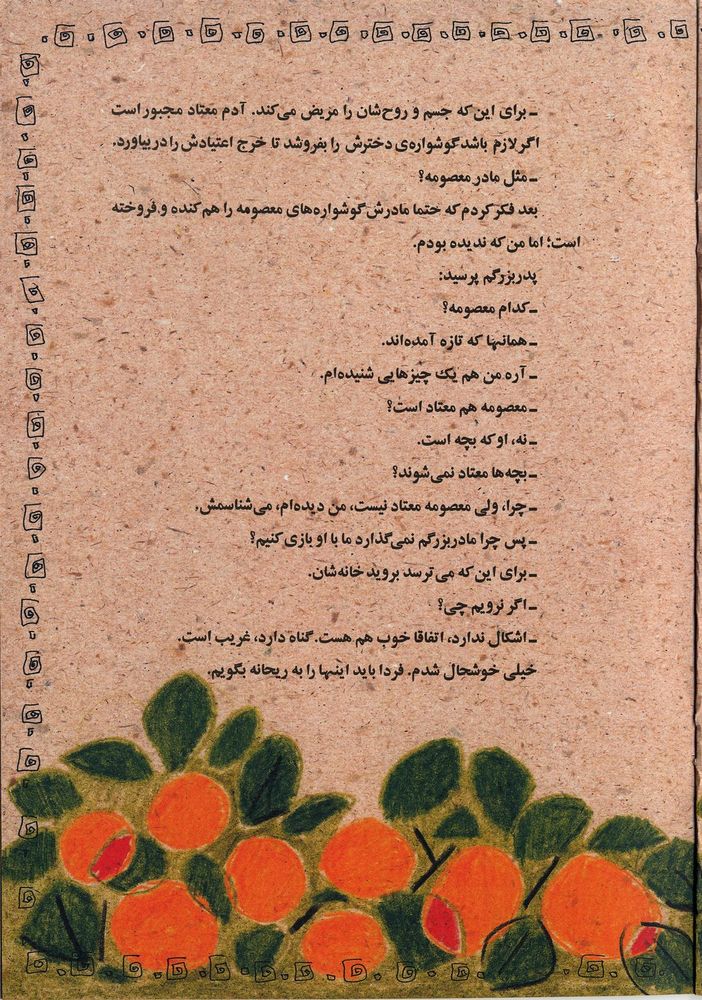 ـ برای این‌که جسم و روح‌شان را مریض می‌کند. آدم معتاد مجبور است
اگر لازم باشد گوشواره‌ی دخترش را بفروشد تا خرج اعتیادش را دربیاورد.
ـ مثل مادر معصومه؟
بعد فکر کردم که حتما مادرش گوشواره‌های معصومه را هم کنده و فروخته
است؛ اما من که ندیده بودم.
پدربزرگم پرسید:
ـ کدام معصومه؟
ـ همانها که تازه آمده‌اند.
ـ آره من هم یک چیزهایی شنیده‌ام.
ـ معصومه هم معتاد است؟
ـ نه، او که بچه است.
ـ بچه‌ها معتاد نمی‌شوند؟
ـ چرا، ولی معصومه معتاد نیست، من دیده‌ام، می‌شناسمش.
ـ پس چرا مادربزرگم نمی‌گذارد ما با او بازی کنیم؟
ـ برای این‌که می‌ترسد بروید خانه‌شان.
ـ اگر نرویم چی؟
ـ اشکال ندارد، اتفاقا خوب هم هست. گناه دارد، غریب است.
خیلی خوشحال شدم. فردا باید اینها را به ریحانه بگویم.